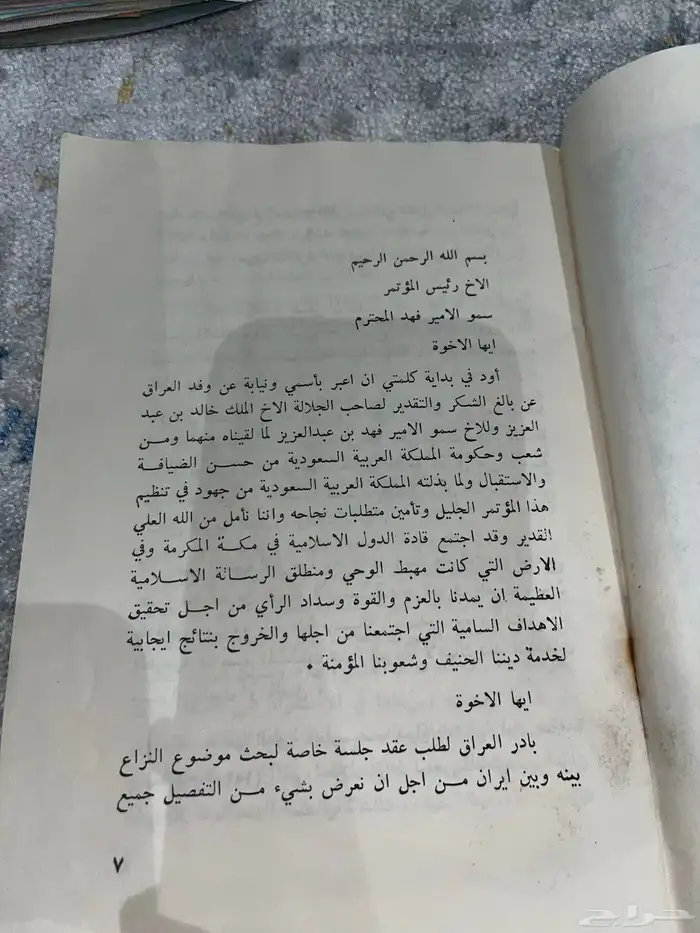 بسم الله الرحمن الرحيم
الاخ رئيس المؤتمر
سمو الامير فهد المحترم
ايها الاخوة
أود في بداية كلمتي ان اعبر بأسمي ونيابة عن وفد العراق
عن بالغ الشكر والتقدير لصاحب الجلالة الاخ الملك خالد بن عبد
العزيز وللاخ سمو الامير فهد بن عبدالعزيز لما لقيناه منهما ومن
شعب وحكومة المملكة العربية السعودية من حسن الضيافة
والاستقبال ولما بذلته المملكة العربية السعودية من جهود في تنظيم
هذا المؤتمر الجليل وتأمين متطلبات نجاحه واننا نأمل من الله العلي
القدير وقد اجتمع قادة الدول الاسلامية في مكة المكرمة وفي
الارض التي كانت مهبط الوحي ومنطلق الرسالة الاسلامية
العظيمة ان يمدنا بالعزم والقوة وسداد الرأي من اجل تحقيق
الاهداف السامية التي اجتمعنا من اجلها والخروج بنتائج ايجابية
لخدمة ديننا الحنيف وشعوبنا المؤمنة .
ايها الاخوة
بادر العراق لطلب عقد جلسة خاصة لبحث موضوع النزاع
بينه وبين ايران من اجل ان نعرض بشيء من التفصيل جميع
٧
حراج